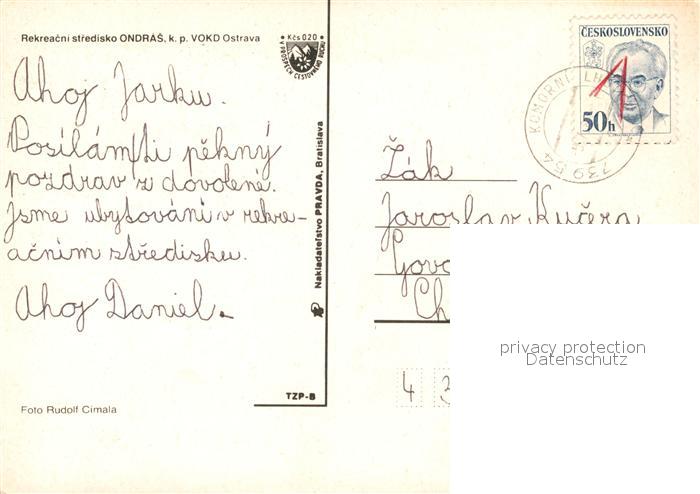 Rekreační středisko ONDRÁŠ, k. p. VOKD Ostrava
Kčs 020
V PROSPĚCH CESTOVNÉHO RUCHU
Ahoj Jarku.
Posílám Ti pěkný
pozdrav z dovolené.
Jsme ubytováni v rekre-
ačním středisku.
Ahoj Daniel.
Foto Rudolf Cimala
TZP-B
Nakladatelstvo PRAVDA, Bratislava
ČESKOSLOVENSKO
50h
KOMORNÍ LH
739 54
Žák
Jaroslav Kučera
Ch
4 3
privacy protection
Datenschutz